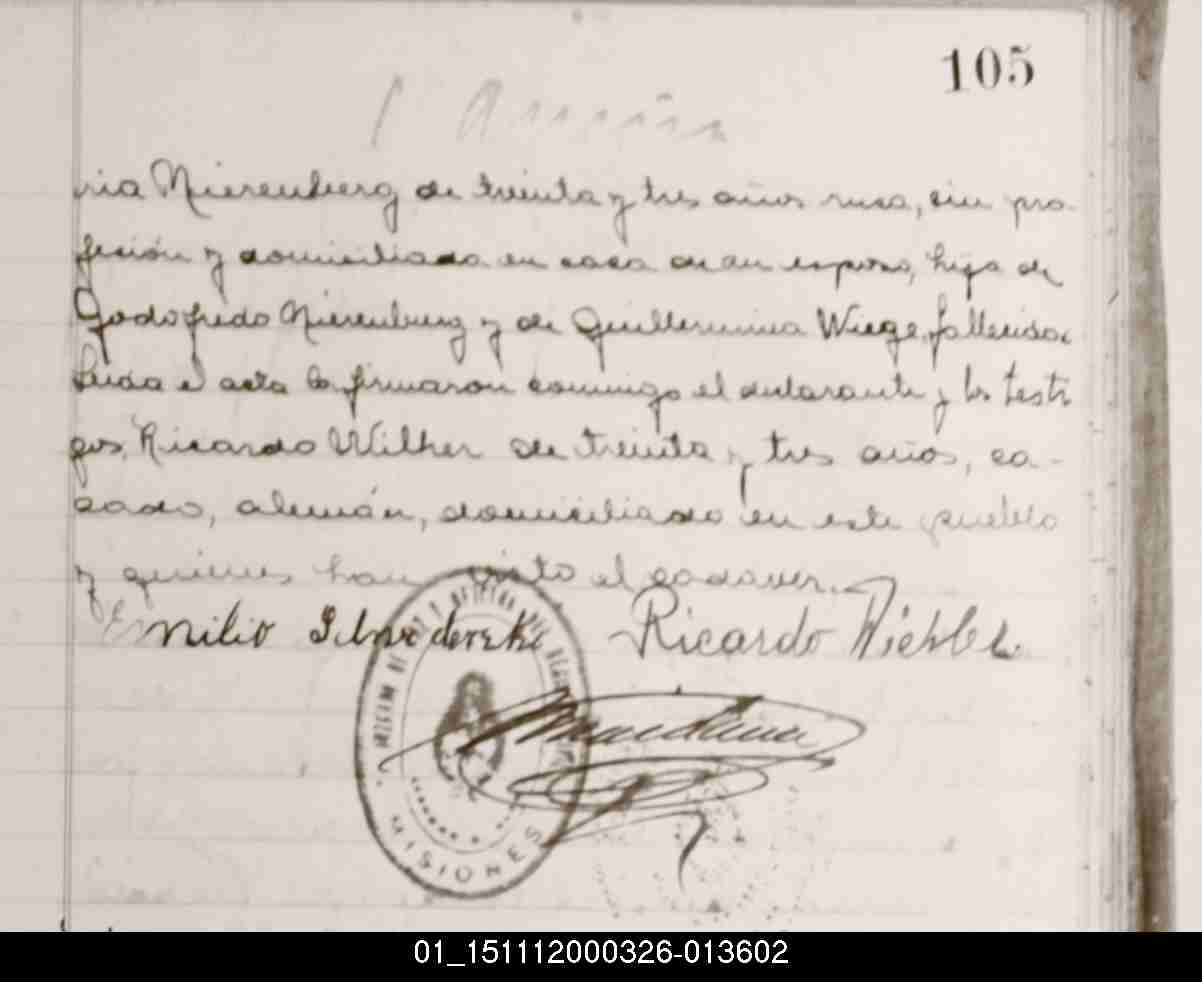 105
ria Nierenberg de treinta y tres años rusa, sin pro-
fesión y domiciliada en casa de su esposo, hija de
Godofredo Nierenberg y de Guillermina Wiege, fallecidos
Leida el acta la firmaron conmigo el declarante y los testi
gos, Ricardo Wilher de treinta y tres años, ca-
sado, alemán, domiciliado en este pueblo
y quienes han visto el cadaver.
Emilio Ricardo
JUZGADO DE PAZ Y OFICINA DEL
MISIONES
01_151112000326-013602